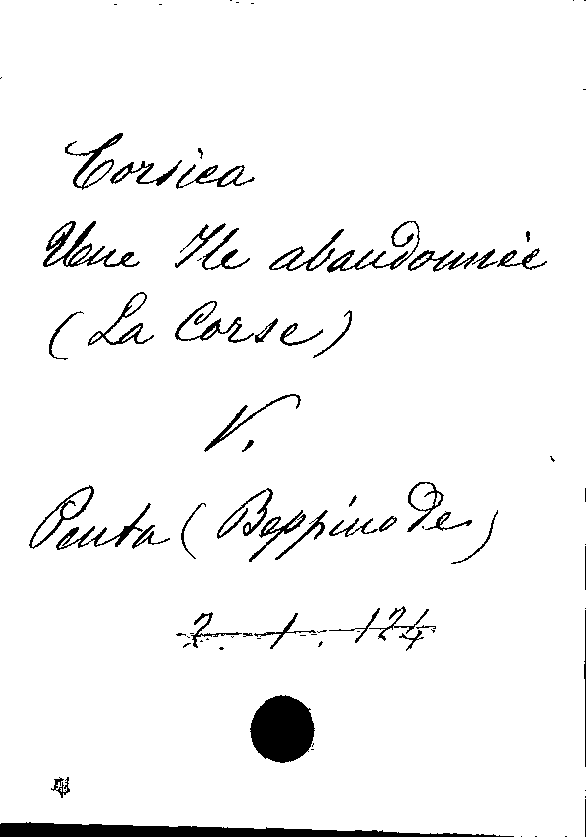 Corsica
Une Ile abandonnée
(La Corse)
V.
Penta (Beppino de)
2. 1. 124